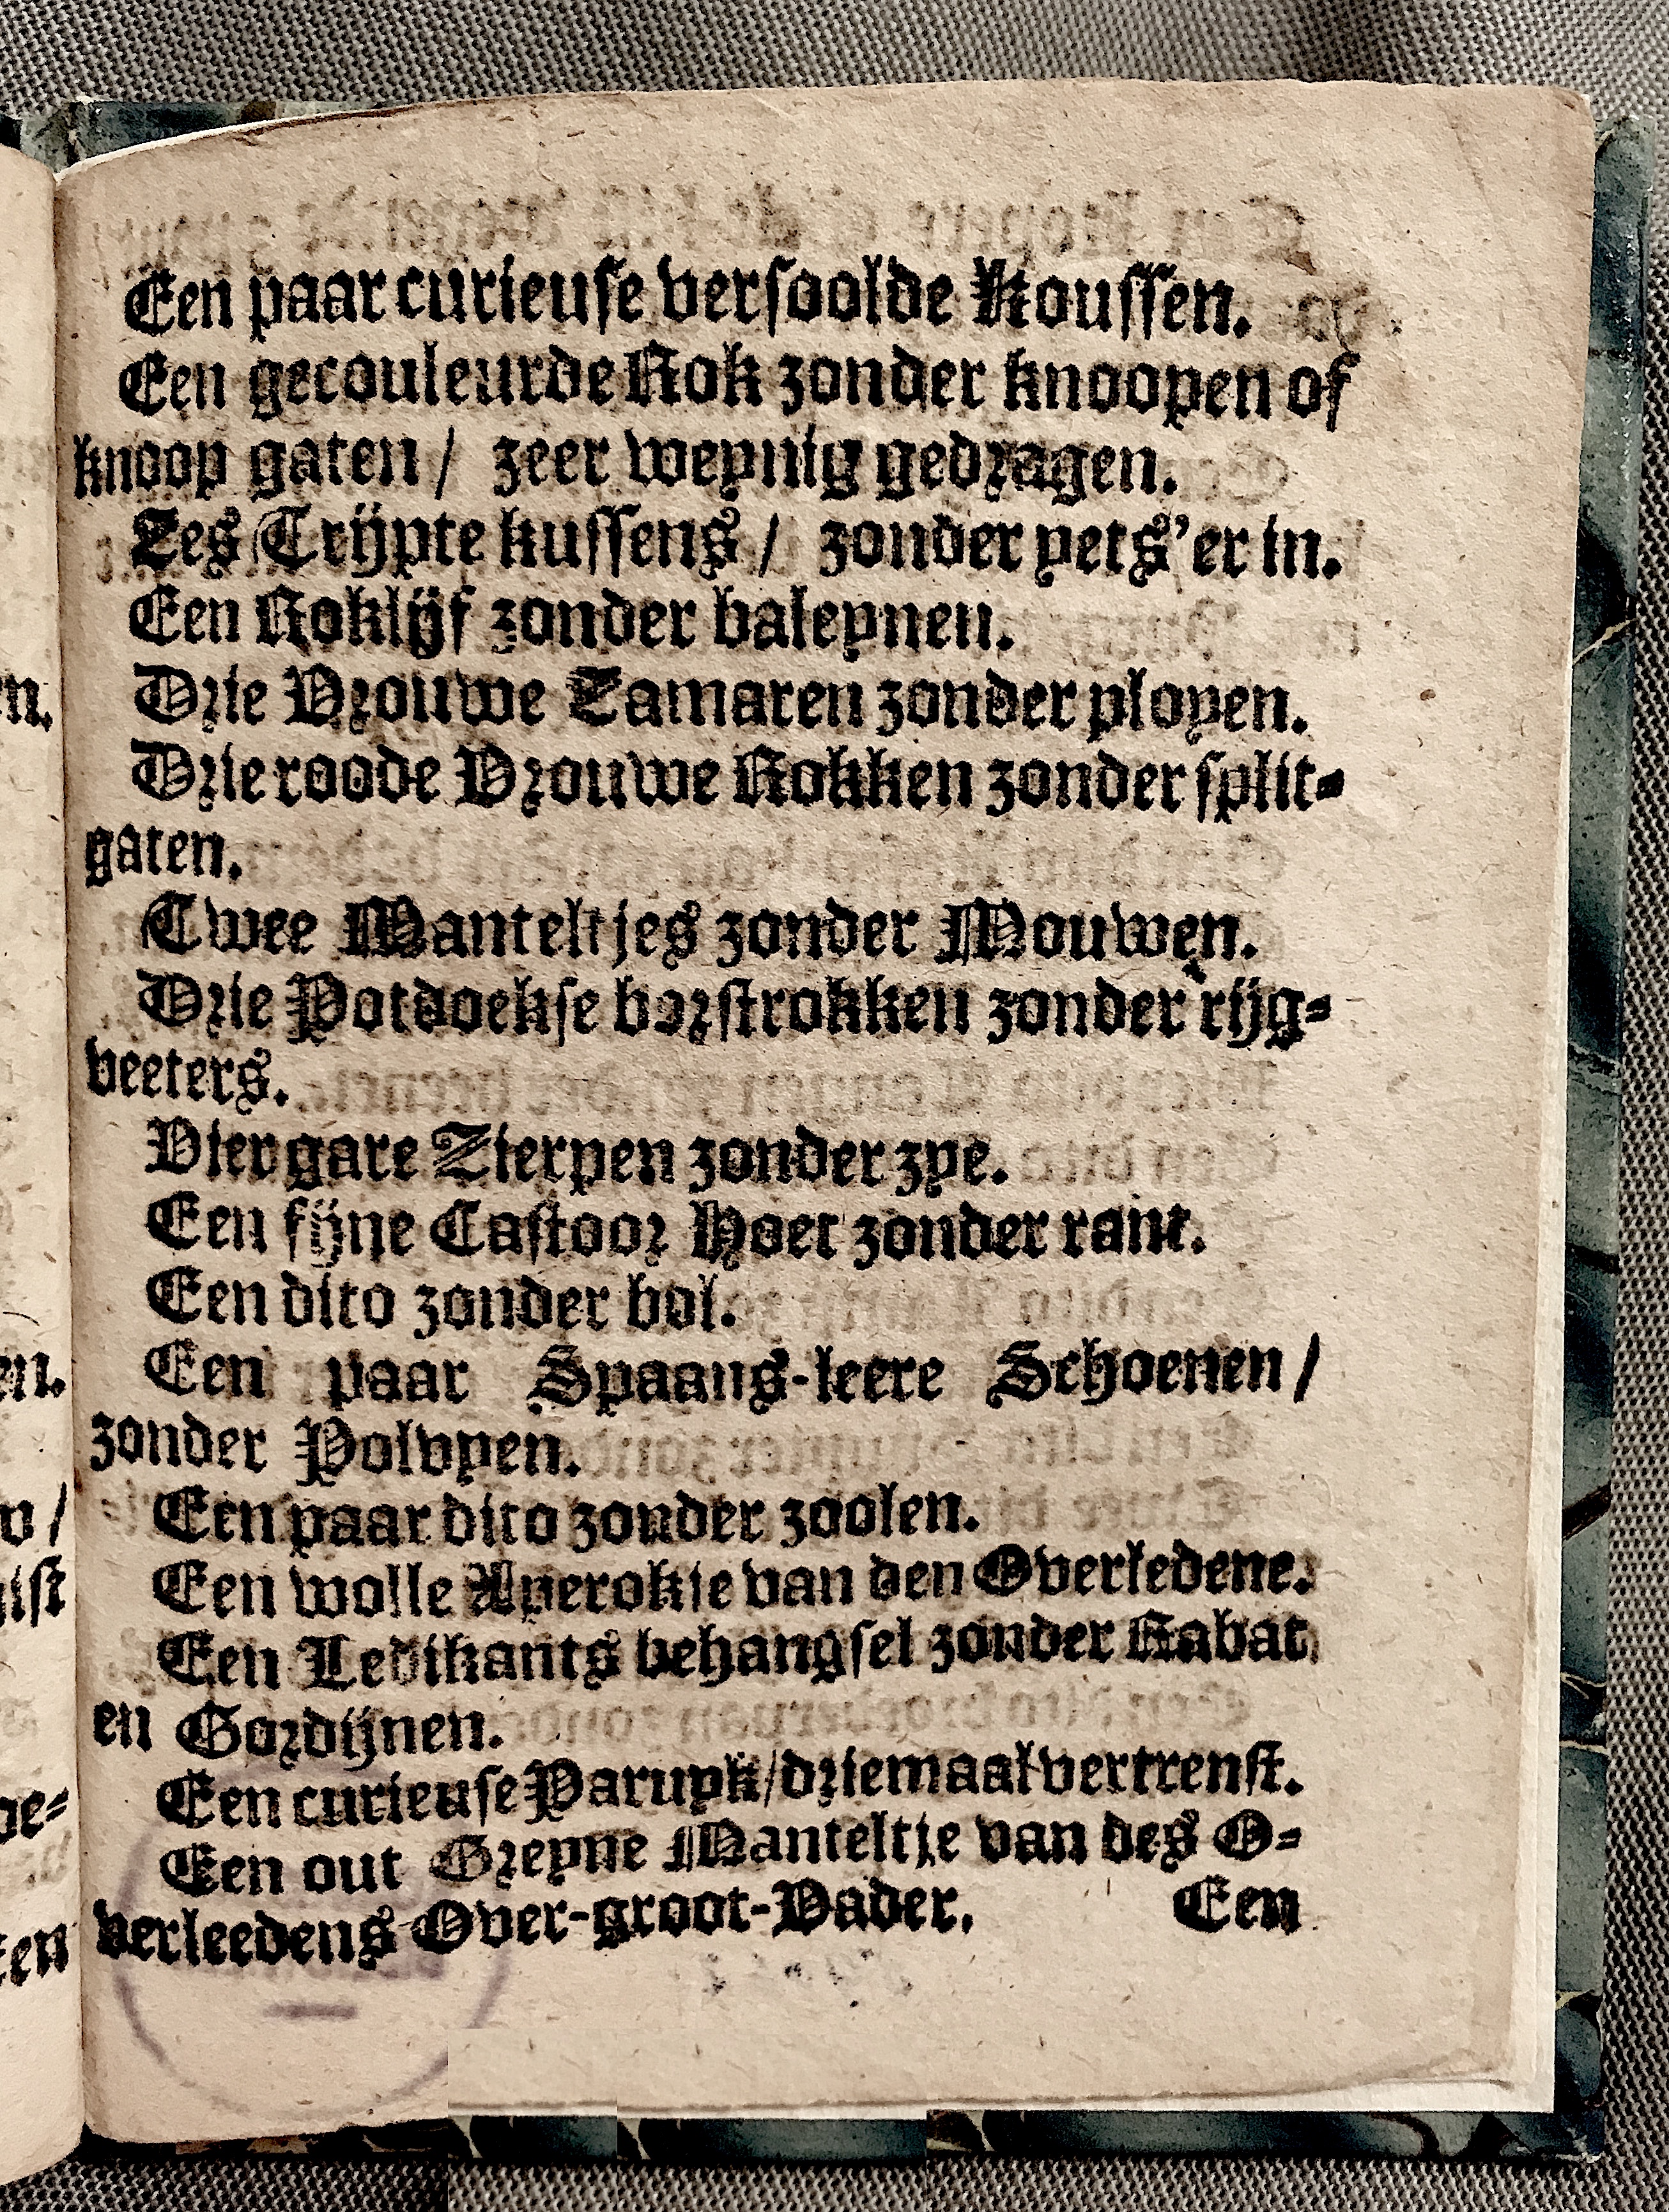 Een paar curieuse versoolde Koussen.
Een gecouleurde Rok zonder knoopen of
knoop gaten / zeer weynig gedragen.
Zes Trijpte kussens / zonder yets'er in.
Een Roklijf zonder baleynen.
Drie Vrouwe Tamaren zonder ployen.
Drie roode Vrouwe Rokken zonder split-
gaten.
Twee Manteltjes zonder Mouwen.
Drie Potdoekse borstrokken zonder rijg-
veeters.
Vier gare Zierpen zonder zye.
Een fijne Castoor Hoet zonder rant.
Een dito zonder bol.
Een paar Spaans-leere Schoenen /
zonder Polvyen.
Een paar dito zonder zoolen.
Een wolle Aperokje van den Overledene.
Een Ledikants behangsel zonder Rabat
en Gordijnen.
Een curieuse Paruyk / driemaal vertrenst.
Een out Greyne Manteltje van des O-
verleedens Over-groot-Vader.
Een